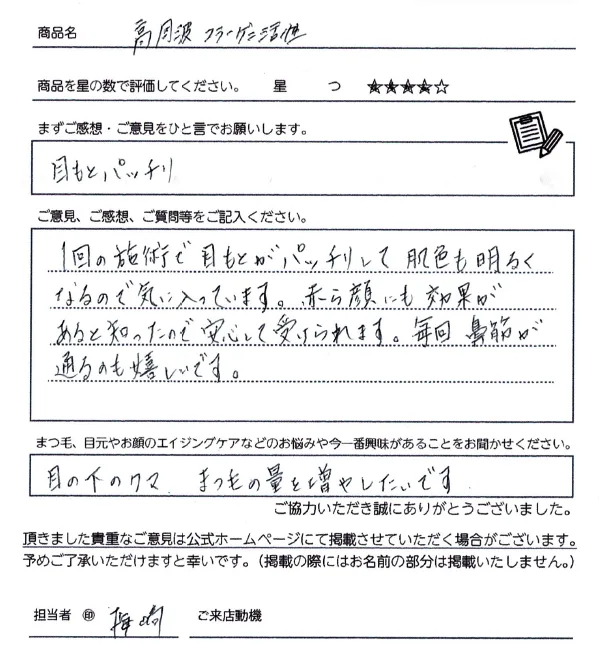 商品名 高周波 コラーゲン活性
商品を星の数で評価してください。 星 つ ★★★★☆
まずご感想・ご意見をひと言でお願いします。
目もとパッチリ
ご意見、ご感想、ご質問等をご記入ください。
1回の施術で目もとがパッチリして肌色も明るく
なるので気に入っています。赤ら顔にも効果が
あると知ったので安心して受けられます。毎回鼻筋が
通るのも嬉しいです。
まつ毛、目元やお顔のエイジングケアなどのお悩みや今一番興味があることをお聞かせください。
目の下のクマ まつ毛の量を増やしたいです
ご協力いただき誠にありがとうございました。
頂きました貴重なご意見は公式ホームページにて掲載させていただく場合がございます。
予めご了承いただけますと幸いです。（掲載の際にはお名前の部分は掲載いたしません。）
担当者 ㊞ 梅崎 ご来店動機